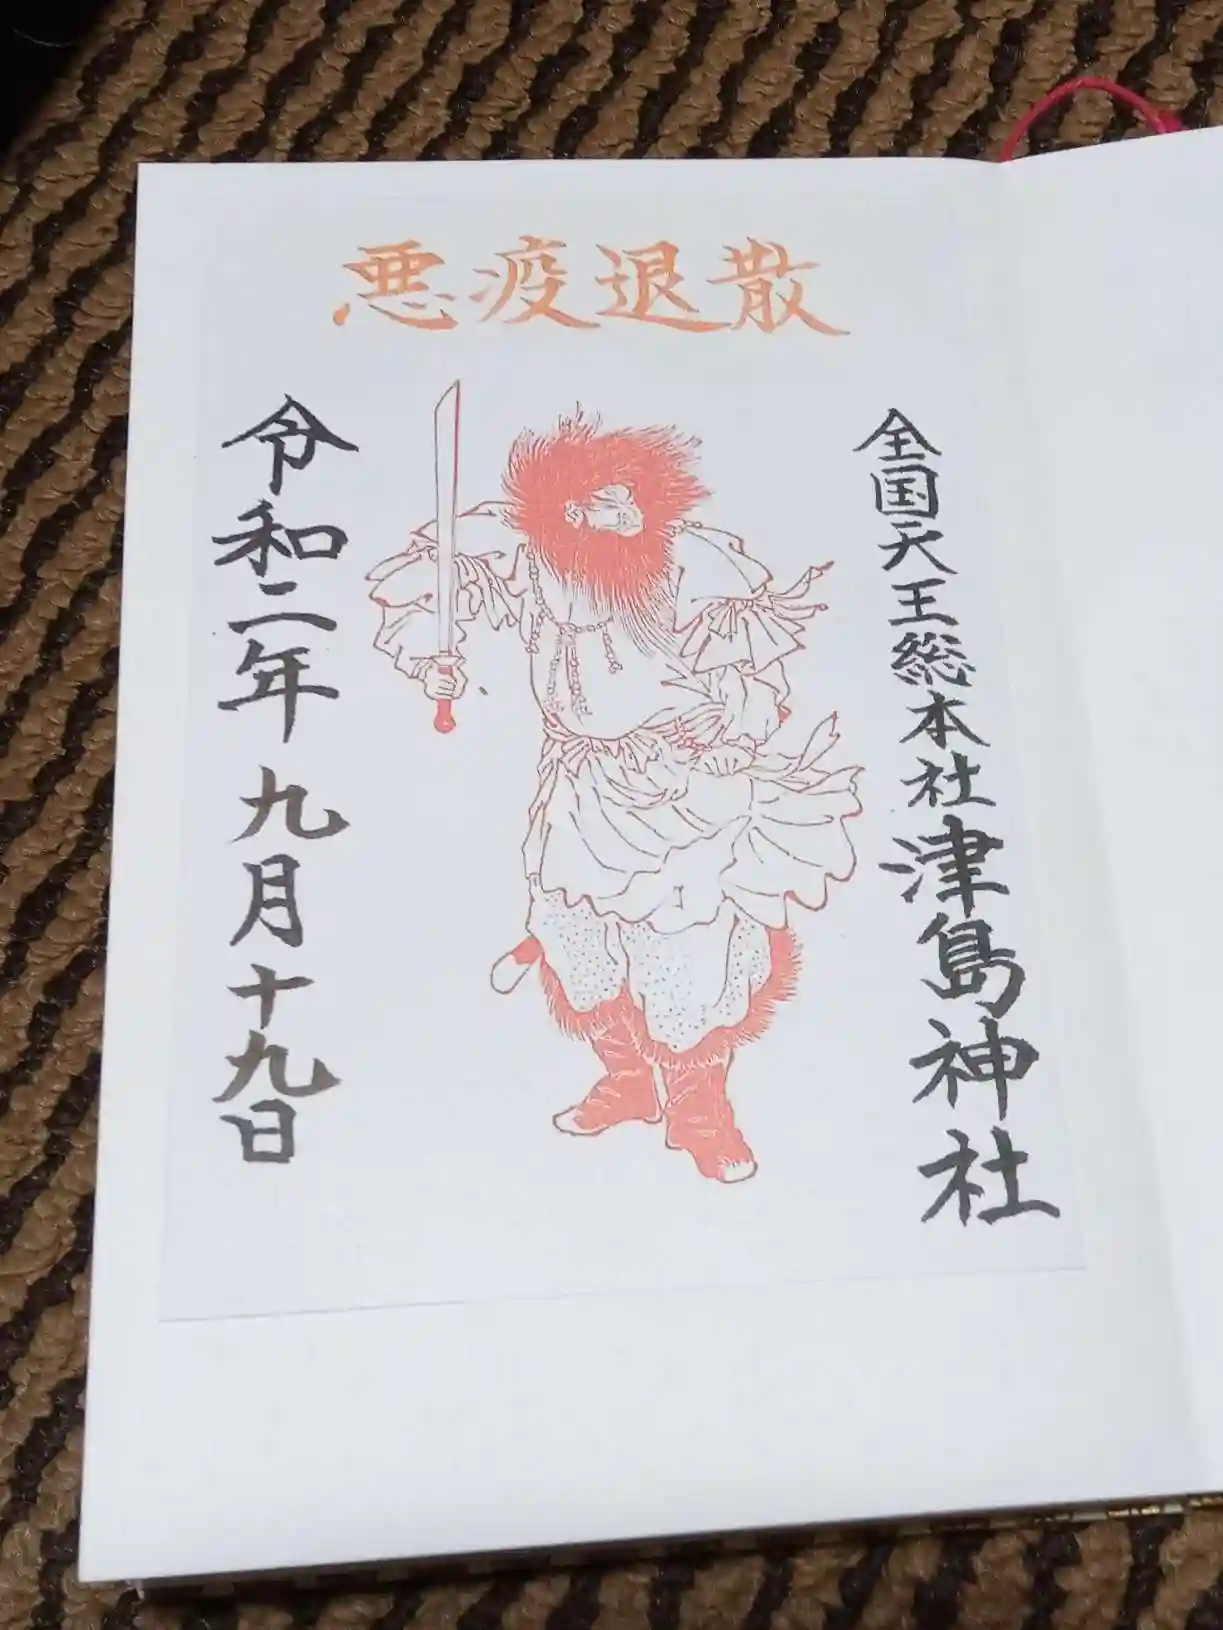 悪疫退散
全国天王総本社津島神社
令和二年九月十九日